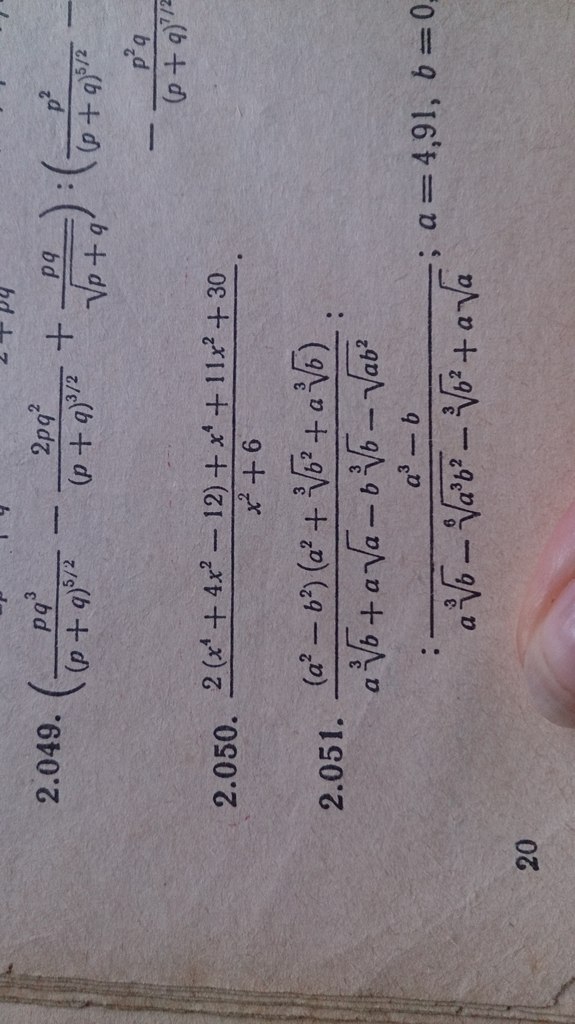 2.049. (pq³/(p + q)^{5/2} − 2pq²/(p + q)^{3/2} + pq/√(p + q)) : (p²/(p + q)^{5/2} −
− p²q/(p + q)^{7/2}
2.050. (2 (x⁴ + 4x² − 12) + x⁴ + 11x² + 30)/(x² + 6).
2.051. ((a² − b²) (a² + ∛b² + a ∛b))/(a ∛b + a √a − b ∛b − √ab²) :
: (a³ − b)/(a ∛b − ⁶√a³b² − ∛b² + a √a); a = 4,91, b = 0,
20